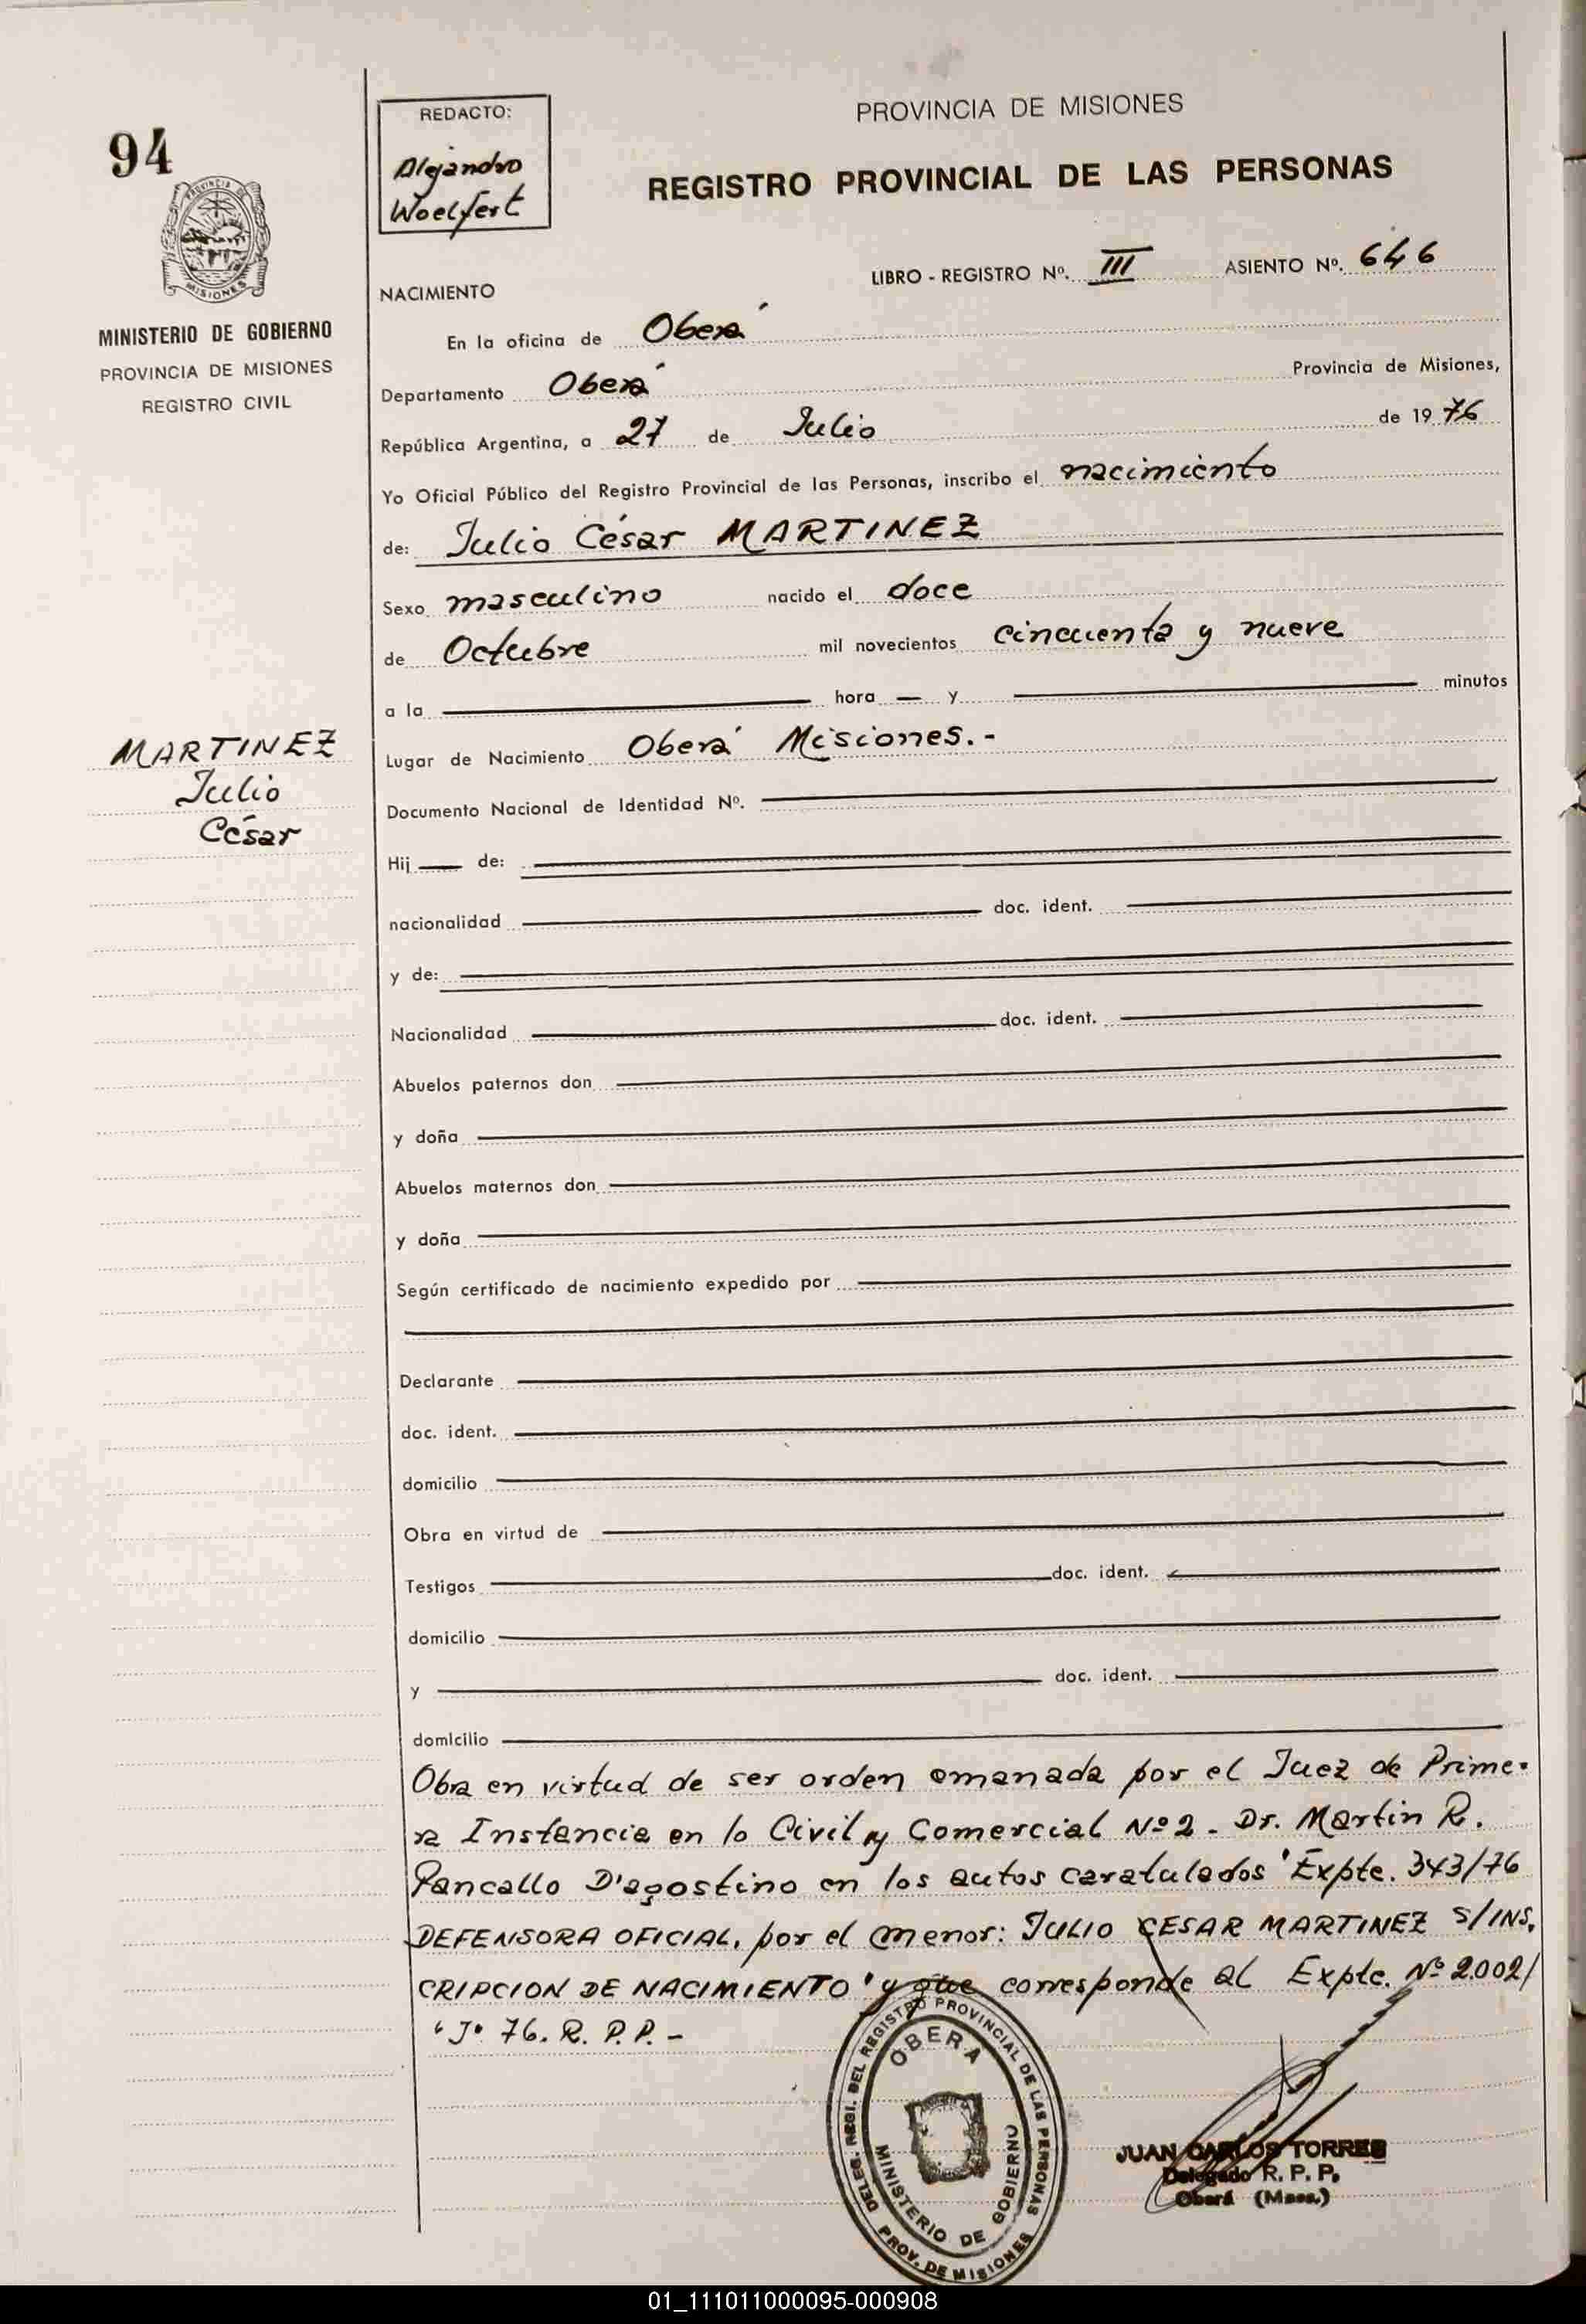 94
PROVINCIA DE
MISIONES
MINISTERIO DE GOBIERNO
PROVINCIA DE MISIONES
REGISTRO CIVIL
REDACTO:
Alejandro
Woelfert
PROVINCIA DE MISIONES
REGISTRO PROVINCIAL DE LAS PERSONAS
LIBRO - REGISTRO Nº. III ASIENTO Nº. 646
NACIMIENTO
En la oficina de Oberá
Departamento Oberá Provincia de Misiones,
República Argentina, a 27 de Julio de 1976
Yo Oficial Público del Registro Provincial de las Personas, inscribo el nacimiento
de: Julio César MARTINEZ
Sexo masculino nacido el doce
de Octubre mil novecientos cincuenta y nueve
a la hora — y minutos
MARTINEZ
Julio
César
Lugar de Nacimiento Oberá Misiones.-
Documento Nacional de Identidad Nº.
Hij — de:
nacionalidad doc. ident.
y de:
Nacionalidad doc. ident.
Abuelos paternos don
y doña
Abuelos maternos don
y doña
Según certificado de nacimiento expedido por
Declarante
doc. ident.
domicilio
Obra en virtud de
Testigos doc. ident.
domicilio
y doc. ident.
domicilio
Obra en virtud de ser orden emanada por el Juez de Prime-
ra Instancia en lo Civil y Comercial Nº 2 - Dr. Martin R.
Pancallo D'agostino en los autos caratulados "Expte. 343/76
DEFENSORA OFICIAL, por el menor: JULIO CESAR MARTINEZ S/INS.
CRIPCION DE NACIMIENTO" y que corresponde al Expte. Nº 2.002/
"J" 76. R. P. P. -
DELEG. REGI. DEL REGISTRO PROVINCIAL DE LAS PERSONAS
OBERA
MINISTERIO DE GOBIERNO
PROV. DE MISIONES
JUAN CARLOS TORRES
Delegado R. P. P.
Oberá (Mnes.)
01_111011000095-000908